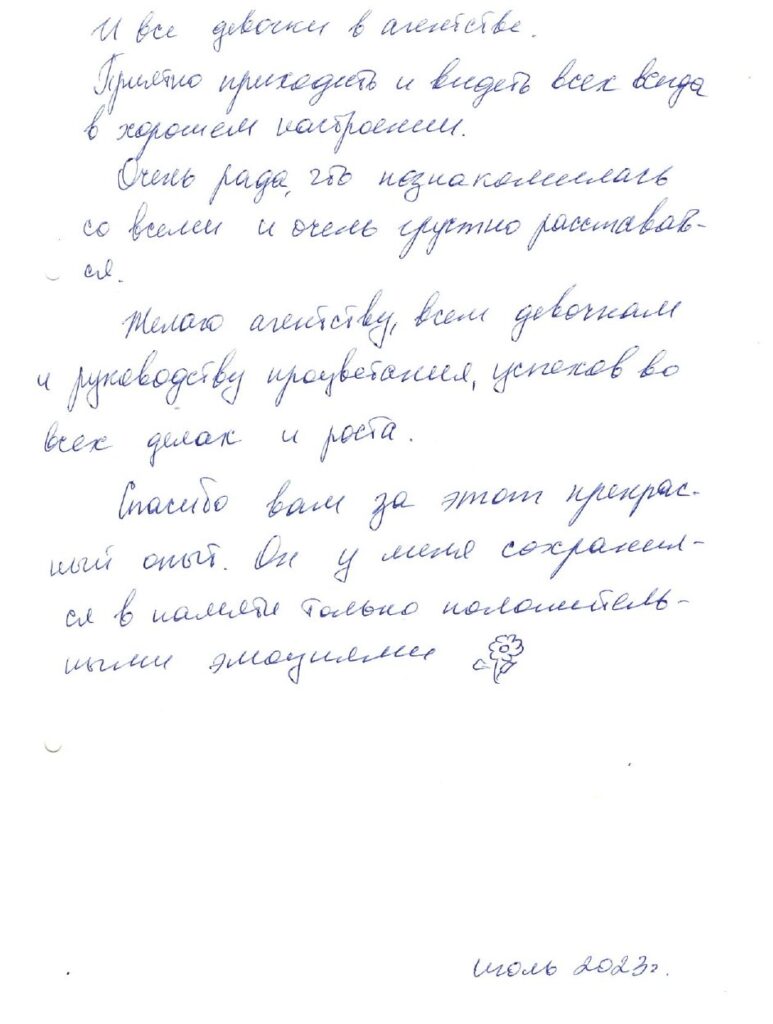 И все девочки в агентстве.
Приятно приходить и видеть всех всегда
в хорошем настроении.
Очень рада, что познакомилась
со всеми и очень грустно расставать-
ся.
Желаю агентству, всем девочкам
и руководству процветания, успехов во
всех делах и роста.
Спасибо вам за этот прекрас-
ный опыт. Он у меня сохранил-
ся в памяти только положитель-
ными эмоциями
июль 2023г.